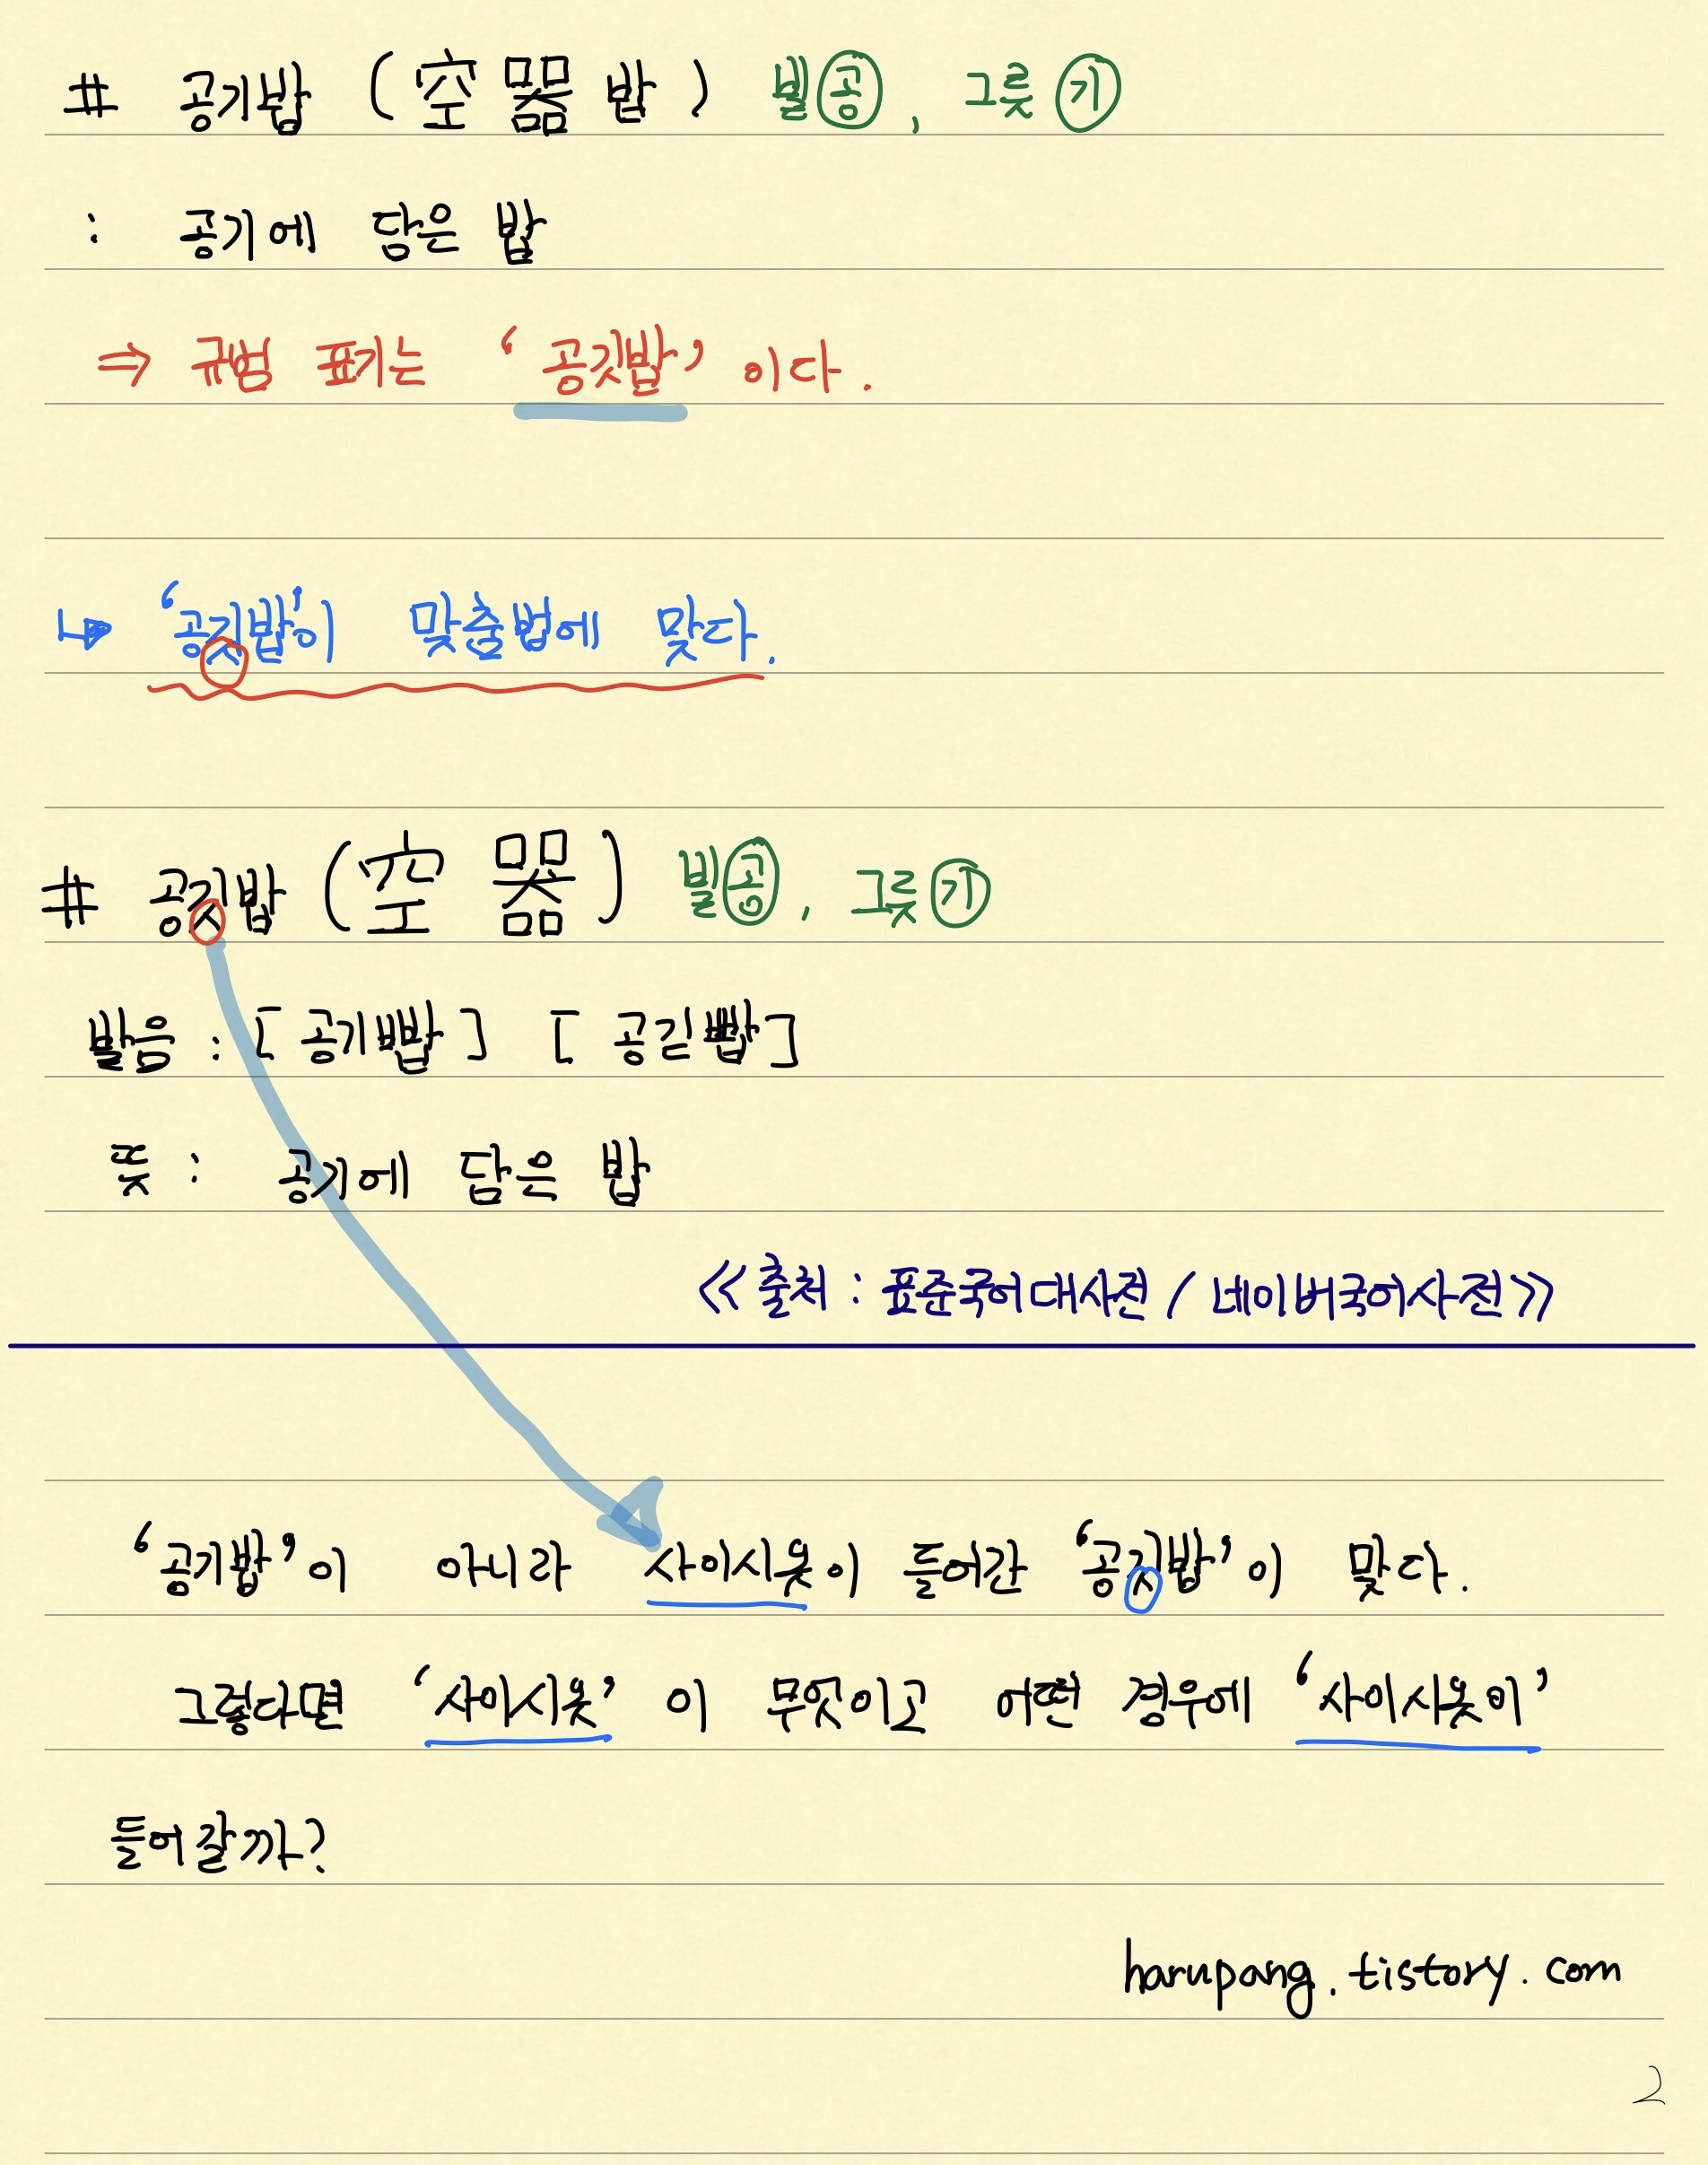 # 공기밥 (空器밥) 빌공, 그릇기
: 공기에 담은 밥
⇒ 규범 표기는 ‘공깃밥’이다.
↳ ‘공깃밥’이 맞춤법에 맞다.
# 공깃밥 (空器) 빌공, 그릇기
발음 : [공기빱] [공긷빱]
뜻 : 공기에 담은 밥
<<출처 : 표준국어대사전 / 네이버국어사전>>
‘공기밥’이 아니라 사이시옷이 들어간 ‘공깃밥’이 맞다.
그렇다면 ‘사이시옷’이 무엇이고 어떤 경우에 ‘사이시옷이’
들어갈까?
harupang.tistory.com
2